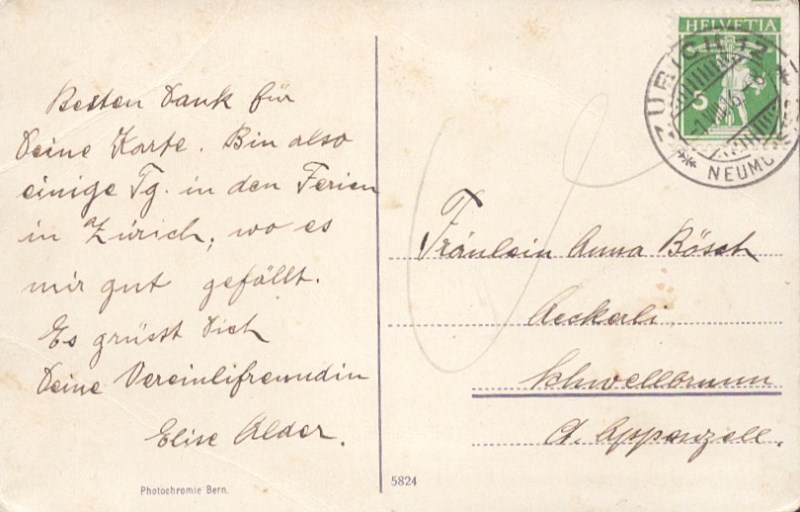 Besten Dank für
Deine Karte. Bin also
einige Tg. in den Ferien
in Zürich, wo es
mir gut gefällt.
Es grüsst Dich
Deine Vereinlifreundin
Elise Alder.
Photochromie Bern.
5824
HELVETIA
5
ZÜRICH 12
NEUMÜ
Fräulein Anna Bösch
Aeckerli
Schwellbrunn
Ct. Appenzell.